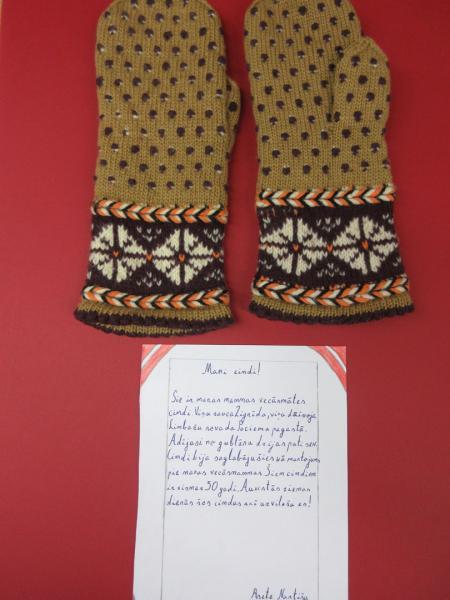 Mani cindi!
Šie ir manas mammas vecāsmātes
cindi. Viņu sauca Zigrīda, viņa dzīvoja
Limbažu novada Pociema pagastā.
Adījusi no gubtēna dzijas pati sev.
Cindi bija saglabājušies kā mantojums
pie manas vecāsmammas. Šiem cindiem
ir vismaz 50 gadi. Aukstās ziemas
dienās šos cindus arī uzvilkšu es!
Arete